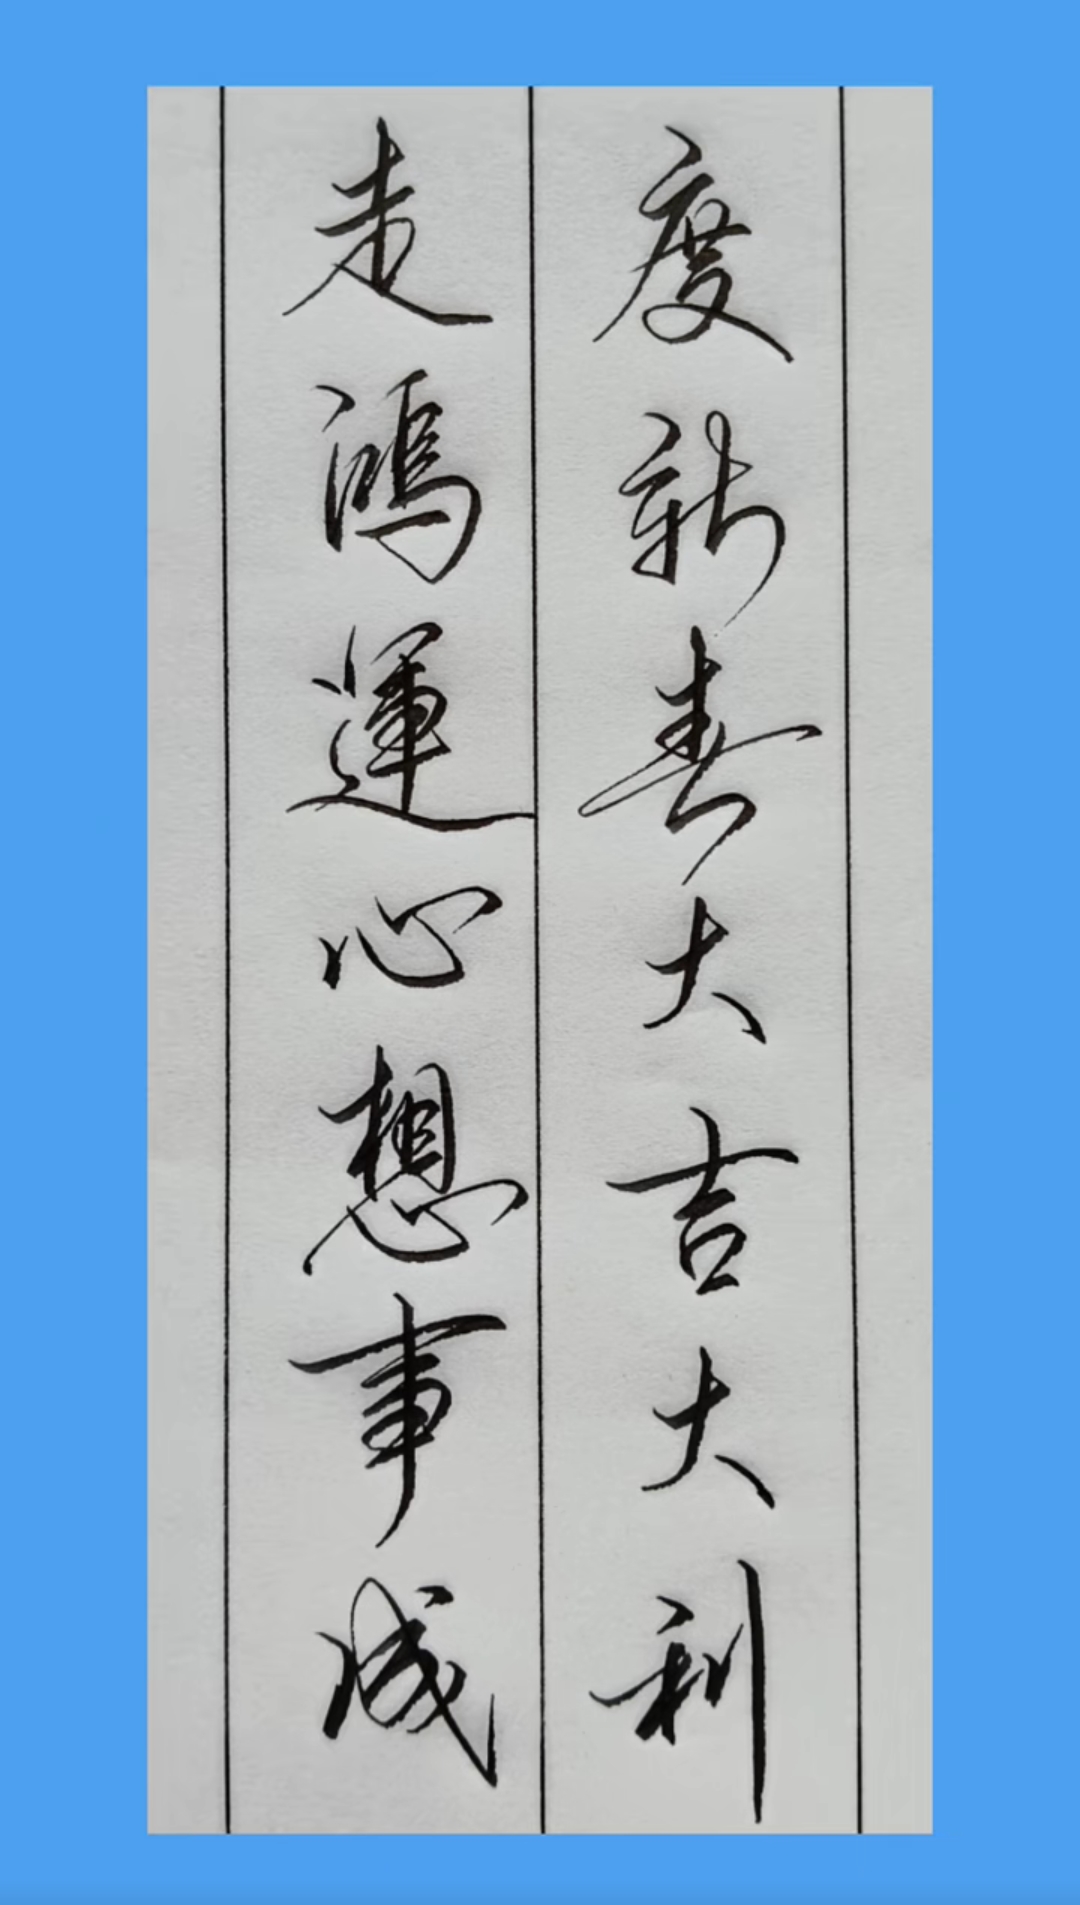 度新春大吉大利
走鴻運心想事成